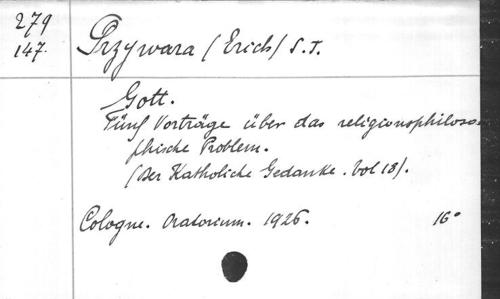 279
147.
Przywara (Erich) S.T.
Gott.
Fünf Vorträge über das religionsphiloso-
phische Problem.
(Der Katholiche Gedanke. Vol 18).
Cologne. Oratorium. 1926. 16°